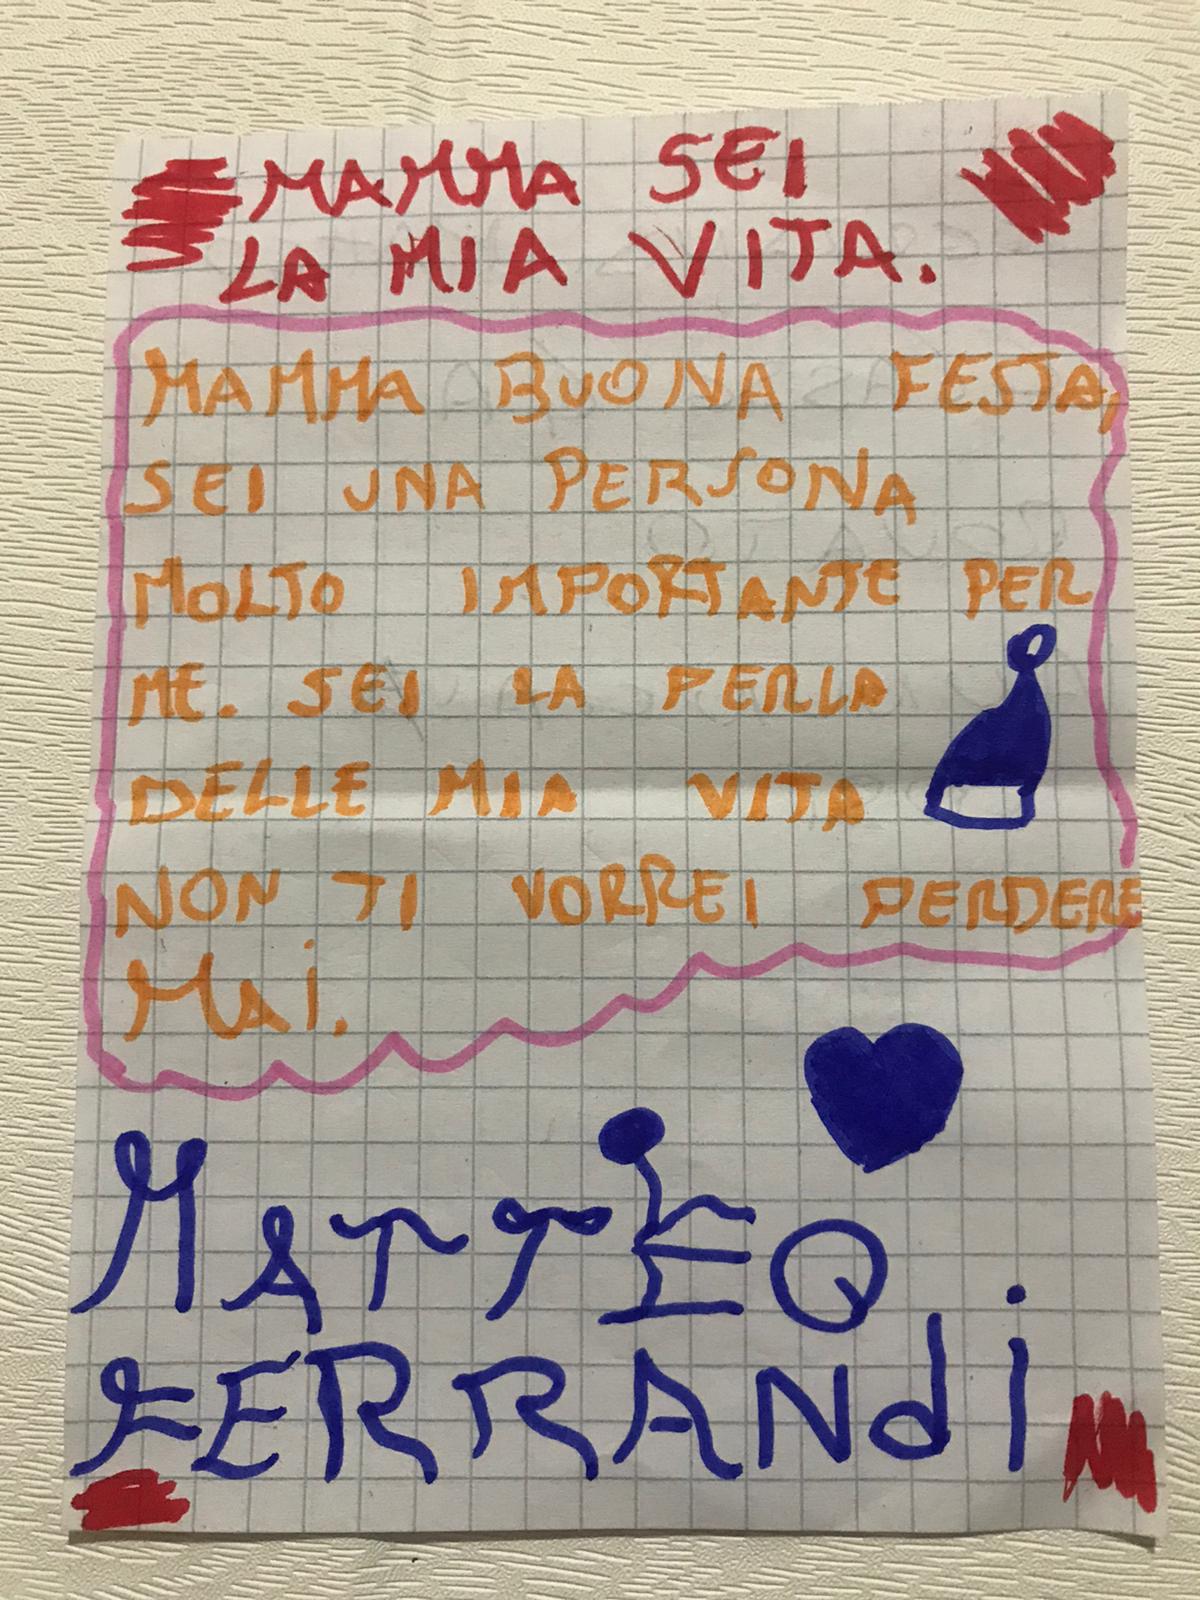 MAMMA SEI
LA MIA VITA.
MAMMA BUONA FESTA,
SEI UNA PERSONA
MOLTO IMPORTANTE PER
ME. SEI LA PERLA
DELLE MIA VITA
NON TI VORREI PERDERE
Mai.
MATTEO
FERRANdi